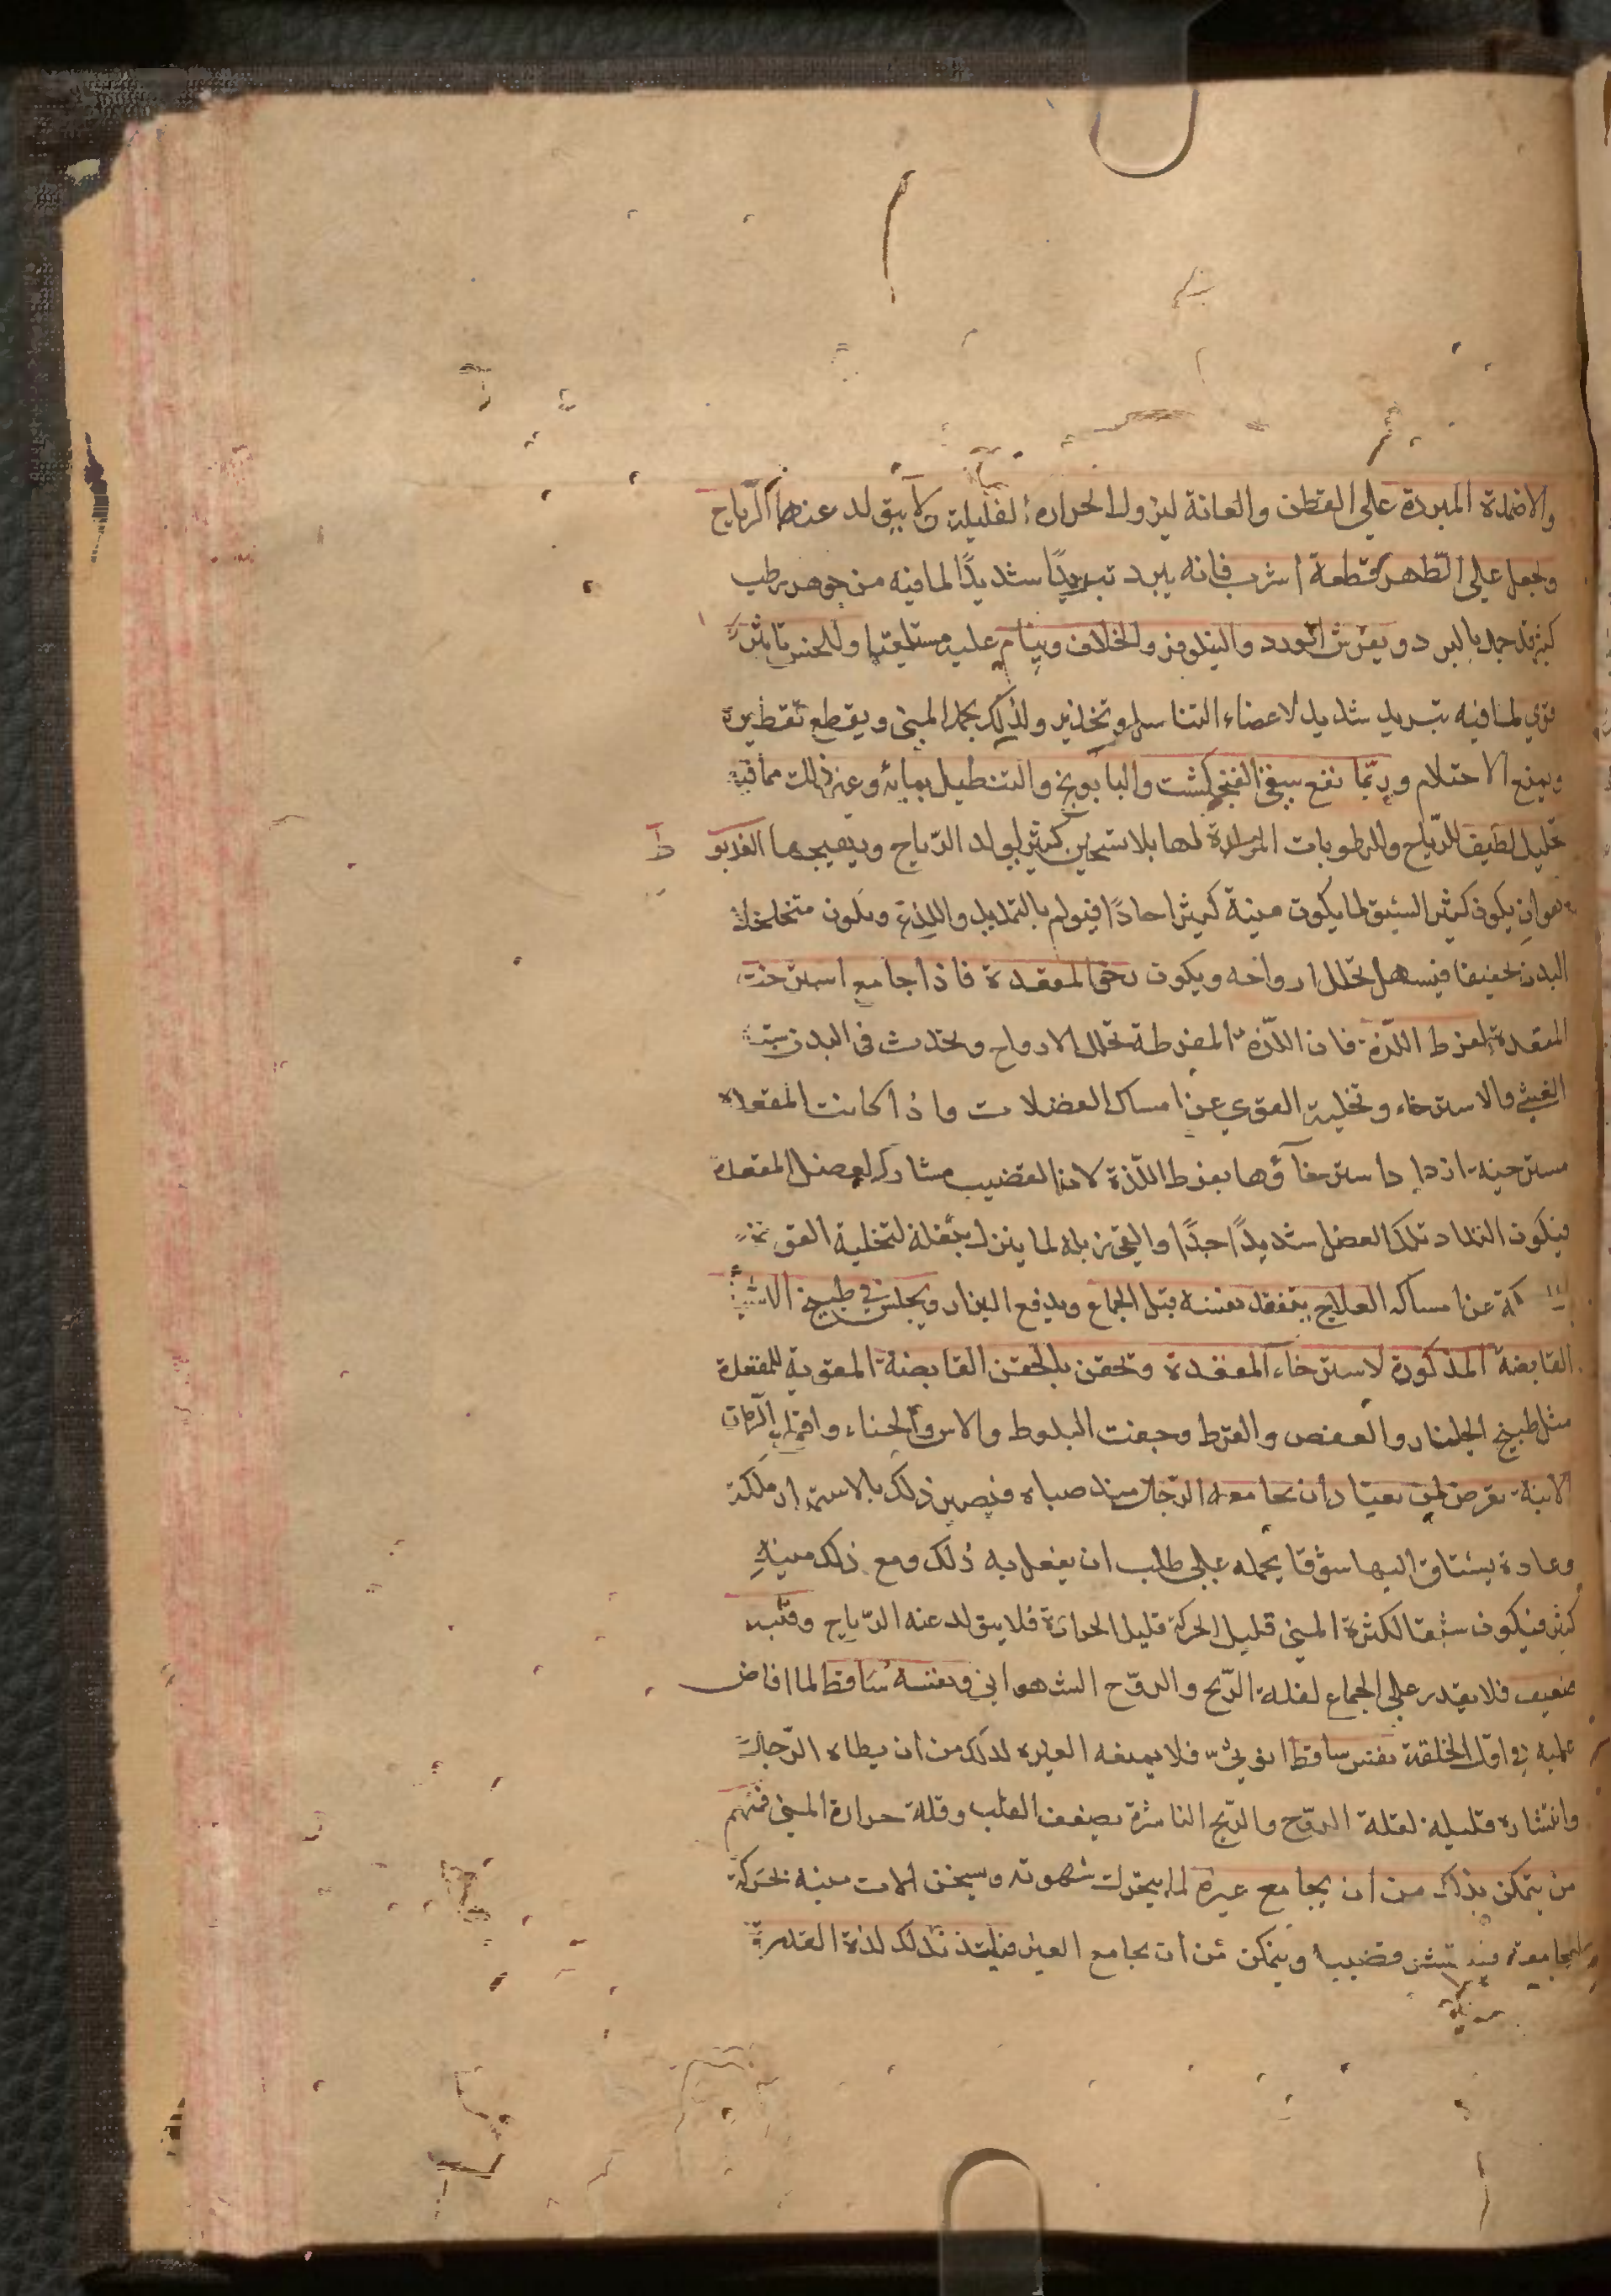 والاضمدة المبردة على القطن والعانة ليزول الحرارة القليلة ولا يتولد عنها الرياح
ويجعل على الظهر قطعة اسرب فانه يبرد تبريدًا شديدًا لما فيه من جوهر رطب
كثير قد جمد بالبرد ويفرش الورد والنيلوفر والخلاف وينام عليه مستلقيا وللخس تاثير
قوي لما فيه تبريد شديد لاعضاء التناسل وتخدير ولذلك يجمد المنى ويقطع تقطيره
ويمنع الاحتلام وربّما نفع الفنجنكشت والبابونج والتنطيل بمائه وغير ذلك مما فيه
تحليل لطيف للرّياح والرطوبات المولدة لها بلا تسخين كثير يولد الرّياح ويهيجها العذيو
ط
هو ان يكون كثير الشبق لما يكون منيه كثيرا حادًا فيولم بالتمديد واللذع ويكون متخلخل
البدن نحيفا فيسهل تحلل ارواحه ويكون رخو المقعدة فاذا جامع استرخت
المقعدة لفرط اللّذة فان اللّذة المفرطة تحلل الارواح وتحدث في البدن شبه
الغشي والاسترخاء وتخلية القوى عن امساك العضلات واذا كانت المقعدة
مسترخية ازداد استرخآؤها بفرط اللّذة لان القضيب مشارك لعضل المقعدة
فيكون التذاذ تلك العضل شديدًا جدًا والقي زبله لما ينزل بثقله لتخلية القوة
الماسكة عن امساكه العلاج يتفقد نفسه قبل الجماع ويدفع البراز ويجلس في طبيخ الاشياء
القابضة المذكورة لاسترخاء المقعدة وتحقن بالحقن القابضة المقوية للمقعدة
مثل طبيخ الجلنار والعفص والقرظ وجفت البلوط والاس والحناء واقماع الرمان
الابنة تعرض لمن يعتاد ان يجامعه الرّجال منذ صباه فيصير ذلك بالاستمرار ملكة
وعادة يشتاق اليها شوقا يحمله على طلب ان يفعل به ذلك ومع ذلك منيه
كثير فيكون شبقا لكثرة المنى قليل الحركة قليل الحرارة فلا يتولد عنه الرّياح وقلبه
ضعيف فلا يقدر على الجماع لقلة الرّيح والروّح الشهواني ونفسه ساقط لما افاض
عليه في اول الخلقة نفس ساقط انوثيّ فلا يمنعه الغيرة لذلك من ان يطاه الرّجال
وانتشاره قليل لقلة الروّح والرّيح الناشرة بضعف القلب وقلة حرارة المنى فمنهم
من يتمكن بذلك من ان يجامع غيره لما يتحرك شهوته ويسخن الات منيه بحركة
المجامعة فينتشر قضيبه ويتمكن من ان يجامع الغير فيلتذ بذلك لذة القدرة